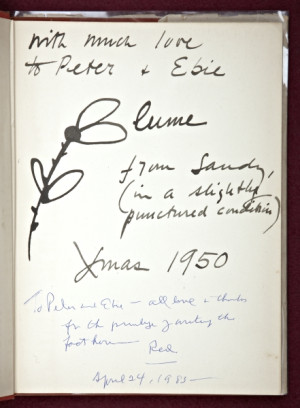 with much love
to Peter + Ebie
Blume
from Sandy,
(in a slightly
punctured condition)
Xmas 1950
To Peter and Ebie – all love + thanks
for the privilege of writing the
foothere
Red
April 24, 1983 –